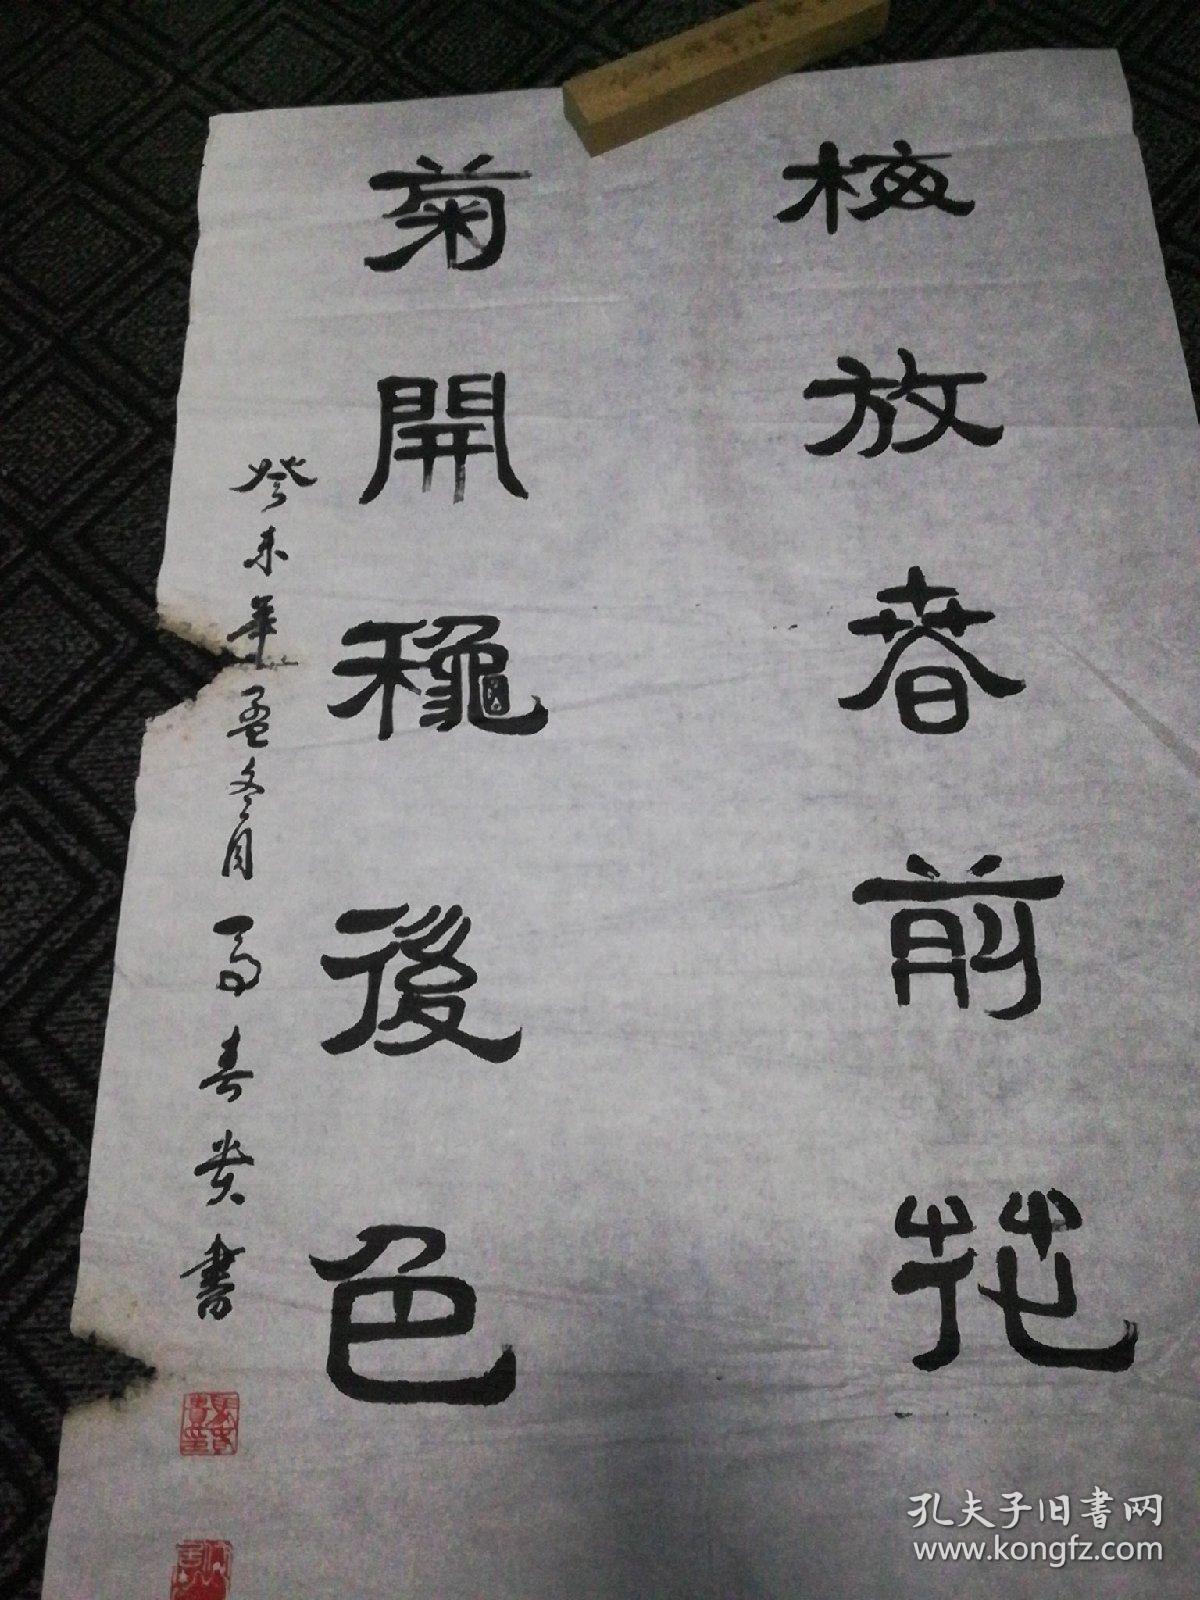 梅放春前花
菊開龝後色
癸未年孟冬月 馬 贵書
孔夫子旧书网
www.kongfz.com